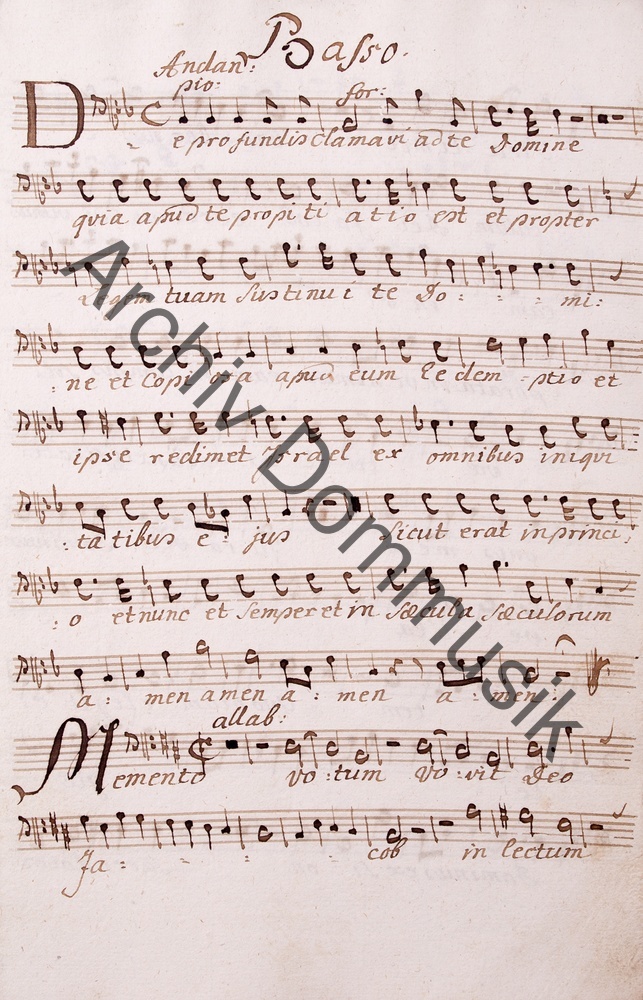 Basso.
Andan:
pio: for:
De profundis clamavi ad te Domine
quia apud te propiti atio est et propter
legem tuam sustinui te Do : : : mi:
: ne et Copi osa apud eum Redem : ptio et
ipse redimet Israel ex omnibus iniqui
: ta tibus e : jus Sicut erat in princi
: o et nunc et semper et in sæcula sæculorum
a : men amen a : men a : men :
allab:
Memento vo : tum vo : vit Deo
Ja : : : : cob in lectum
Archiv Dommusik